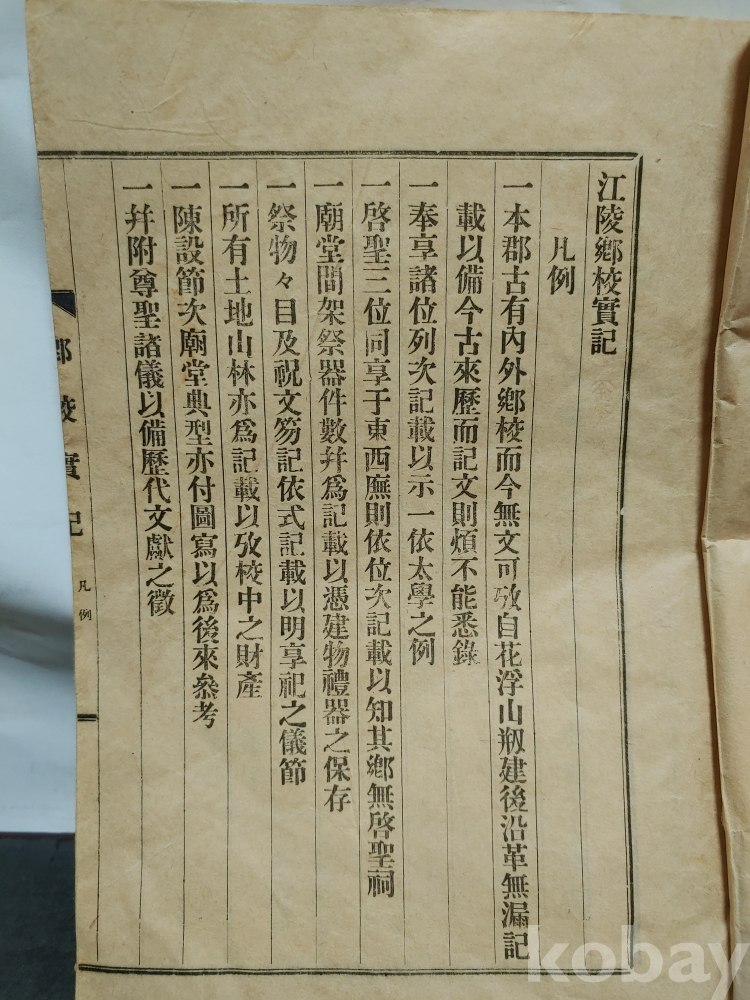 江陵鄕校實記
凡例
一本郡古有內外鄕校而今無文可攷自花浮山刱建後沿革無漏記
載以備今古來歷而記文則煩不能悉錄
一奉享諸位列次記載以示一依太學之例
一啓聖三位同享于東西廡則依位次記載以知其鄕無啓聖祠
一廟堂間架祭器件數幷爲記載以憑建物禮器之保存
一祭物々目及祝文笏記依式記載以明享祀之儀節
一所有土地山林亦爲記載以攷校中之財產
一陳設節次廟堂典型亦付圖寫以爲後來叅考
一幷附尊聖諸儀以備歷代文獻之徵
鄕校實記
凡例
kobay